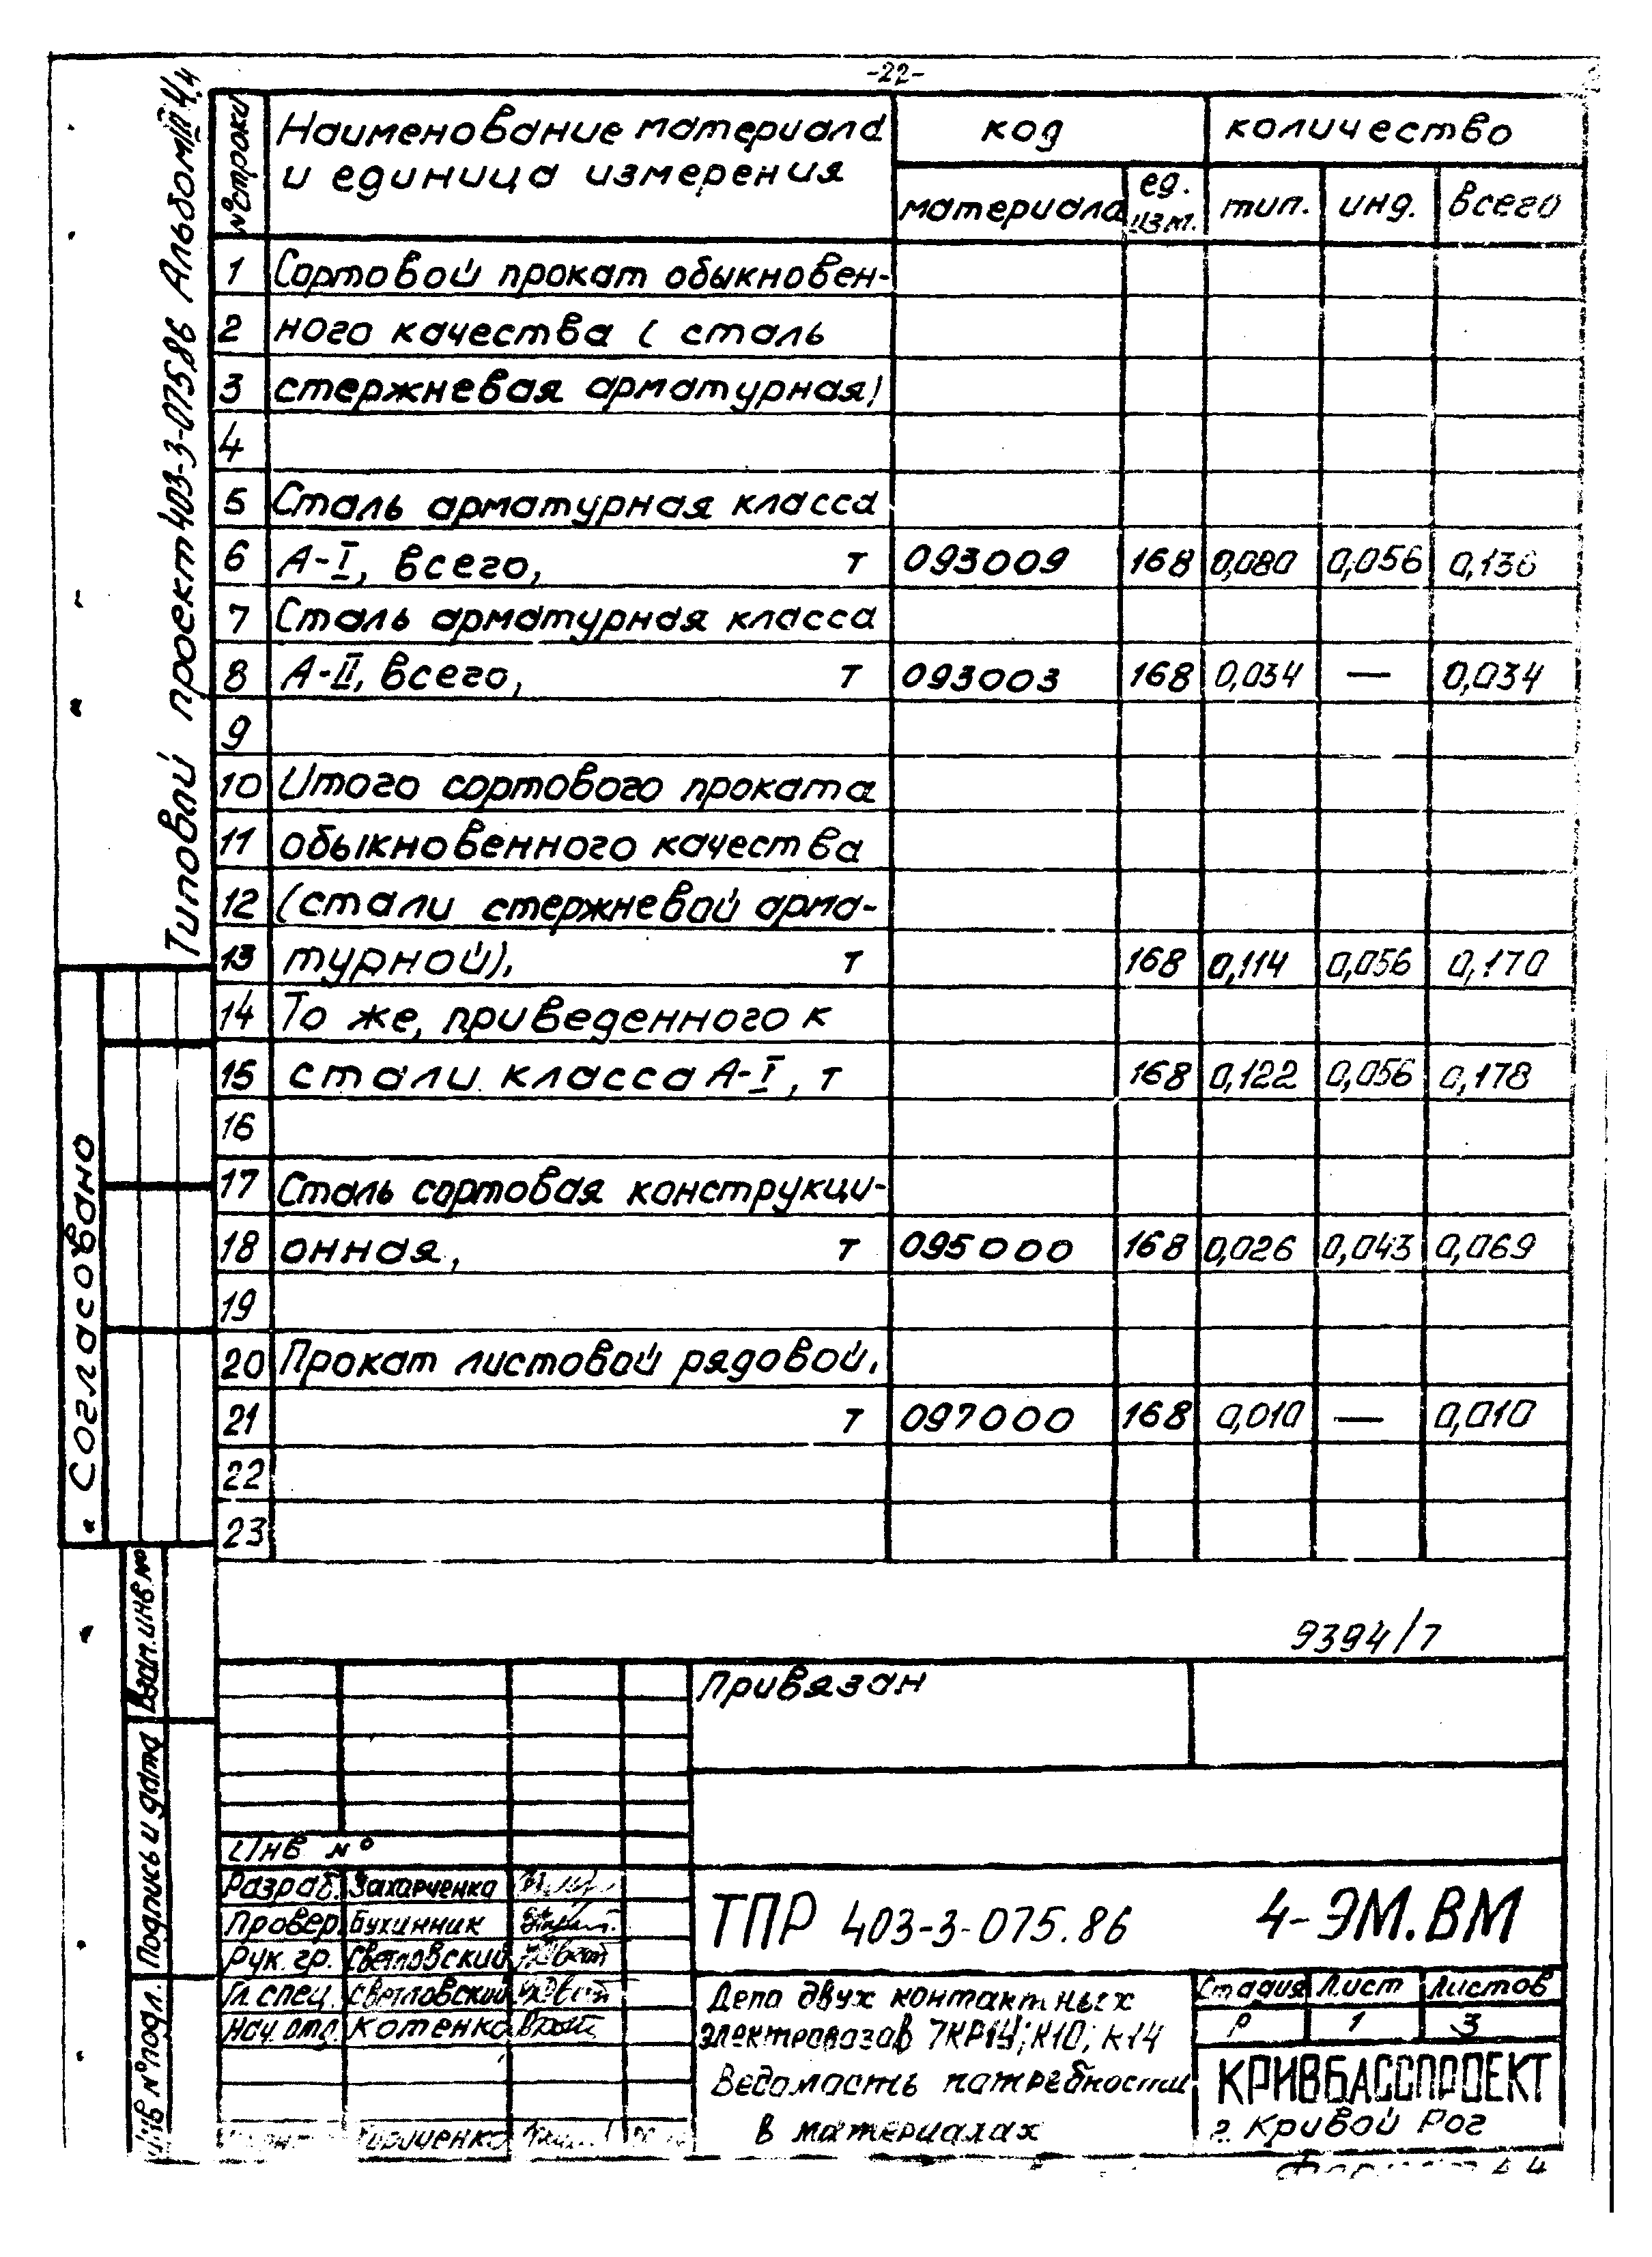 -22-
Типовой проект 403-3-075.86 Альбом
№ строки
Наименование материала
и единица измерения
код
количество
материала
ед.
изм.
тип.
инд.
всего
1 Сортовой прокат обыкновен-
2 ного качества (сталь
3 стержневая арматурная)
4
5 Сталь арматурная класса
6 А-I, всего, т 093009 168 0,080 0,056 0,136
7 Сталь арматурная класса
8 А-II, всего, т 093003 168 0,034 — 0,034
9
10 Итого сортового проката
11 обыкновенного качества
12 (стали стержневой арма-
13 турной), т 168 0,114 0,056 0,170
14 То же, приведенного к
15 стали класса А-I, т 168 0,122 0,056 0,178
16
17 Сталь сортовая конструкци-
18 онная, т 095000 168 0,026 0,043 0,069
19
20 Прокат листовой рядовой,
21 т 097000 168 0,010 — 0,010
22
23
Согласовано
Взам. инв. №
Подпись и дата
Инв № подл.
9394/7
Привязан
Инв №
Разраб. Захарченко
Провер. Бухинник
Рук. гр. Светловский
Гл. спец. Светловский
Нач. отд. Котенко
ТПР 403-3-075.86 4-ЭМ.ВМ
Депо двух контактных
электровозов 7КР14; К10; К14
Ведомость потребности
в материалах
Стадия Лист Листов
Р 1 3
КРИВБАССПРОЕКТ
г. Кривой Рог
Формат А4